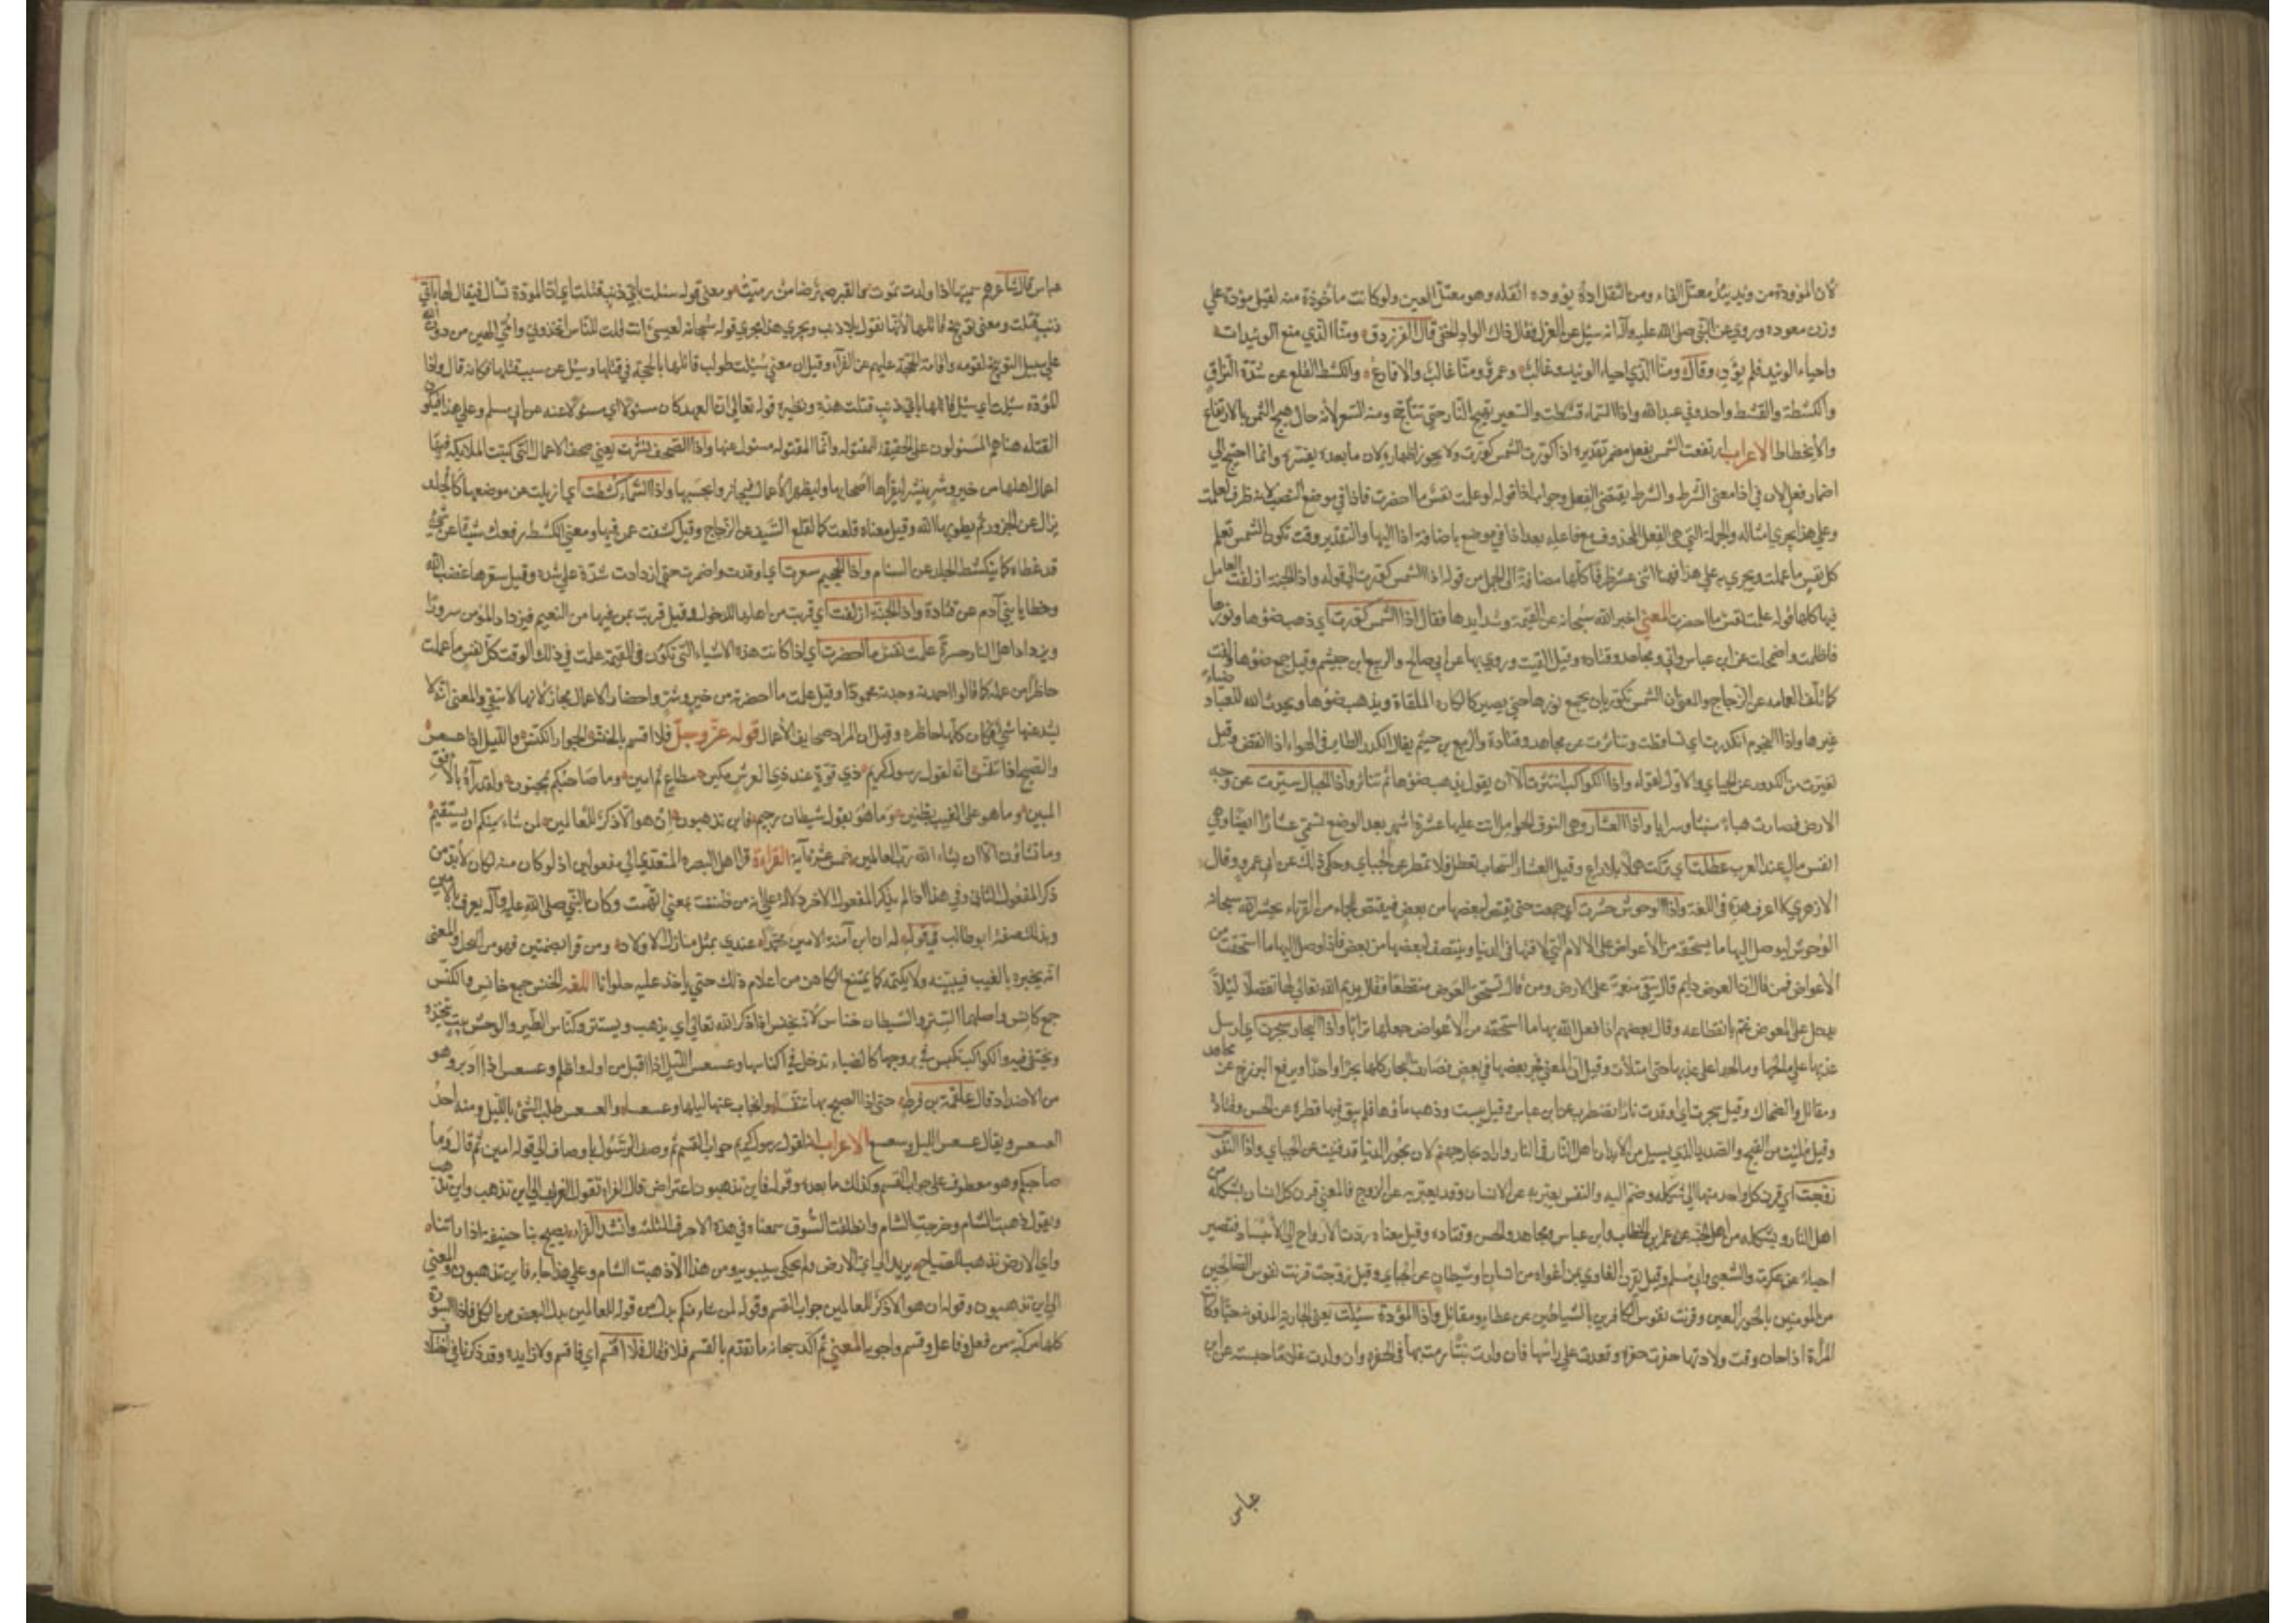 لان الموؤدة من وئد يئد معتل الفاء ومن الثقل اده يؤوده اثقله وهو معتل العين ولو كانت ماخوذة منه لقيل مؤدة علي
وزن معوده وروي عن النبي صلى الله عليه وآله انه سئل عن العزل فقال ذاك الواد الخفي قال الفرزدق ومنا الذي منع الوئيدات
واحياء الوئيد فلم يؤد وقال ومنا الذي احياء الوئيد وغالب وعمرو ومنا غالب والاقارع والكشط القلع عن شدة التزاق
والكشطة والقشط واحد وفي عبد الله واذا السماء قشطت والتسعير تهيج النار حتى تتأجج ومنه السعر لانه حال هيج الثمن بالارتفاع
والانحطاط الاعراب ارتفعت الشمس بفعل مضمر تقديره اذا كورت الشمس كورت ولا يجوز اظهاره لان ما بعده يفسره وانما احتيج الي
اضمار فعل لان في اذا معنى الشرط والشرط يقتضي الفعل وجواب اذا قوله لو علمت نفس ما احضرت فاذا في موضع النصب لانه ظرف لعلمت
وعلى هذا يجري امثاله والجملة التي هي الفعل المحذوف مع فاعله بعد اذا في موضع باضافة اذا اليها والتقدير وقت تكون الشمس تعلم
كل نفس ما عملت ويجري به علي هذا فهنا اثنى عشر ظرفا كلها مضافة الى الجمل من قوله اذا الشمس كورت الي قوله واذا الجنة ازلفت والعامل
فيها كلها قوله علمت نفس ما احضرت المعني اخبر الله سبحانه عن القيمة وشدايدها فقال اذا الشمس كورت اي ذهب ضوءها ونورها
فاظلمت واضمحلت عن ابن عباس وابي ومجاهد وقتاده وقيل القيت وروي بها عن ابي صالح والربيع ابن خيثم وقيل جمع ضوءها ولفت
كما تلف العمامه عن الزجاج والمعنى ان الشمس تكور بان يجمع نورها حتى يصير كالكاره الملقاة ويذهب ضوءها ويحدث الله للعباد ضياء
غيرها واذا النجوم انكدرت اي تساقطت وتناثرت عن مجاهد وقتادة والربيع بن خيثم يقال انكدر الطاير في الهواء اذا انقض وقيل
تغيرت من الكدور عن الجبائي والاول لقوله واذا الكواكب انتثرت الا ان يقول يذهب ضوءها ثم تتناثر واذا الجبال سيرت عن وجه
الارض فصارت هباء منبثا وسرابا واذا العشار وهي النوق الحوامل اتت عليها عشرة اشهر بعد الوضع تسمى عشارا ايضا وهي
انفس مال عند العرب عطلت اي تركت هملا بلا راع وقيل العشار السحاب تعطل فلا تمطر عن الجبائي وحكي ذلك عن ابي عمرو وقال
الازهري لا اعرف هذا في اللغة واذا الوحوش حشرت اي جمعت حتى يقتص لبعضها من بعض فيقتص للجماء من القرناء يحشر الله سبحانه
الوحوش ليوصل اليها ما يستحقه من الاعواض على الالام التي لاقتها في الدنيا وينتصف لبعضها من بعض فاذا وصل اليها ما استحقت من
الاعواض فمن قال ان العوض دايم قال تبقى منعمة على الارض ومن قال تستحق العوض منقطعا فقال يديم الله تعالي لها تفضلا ليلا
يدخل علي المعوض غم بانقطاعه وقال بعضهم اذا فعل الله بها ما استحقه من الاعواض جعلها ترابا واذا البحار سجرت اي ارسل
عذبها علي مالحها ومالحها على عذبها حتى امتلأت وقيل ان المعني فجر بعضها في بعض فصارت البحار كلها بحرا واحدا ويرفع البرزخ عن مجاهد
ومقاتل والضحاك وقيل سجرت اي اوقدت نارا تضطرب عن ابن عباس وقيل يبست وذهب ماؤها فلم يبق فيها قطرة عن الحسن وقتادة
وقيل ملئت من القيح والصديد الذي يسيل من ابدان اهل النار في النار واراد بحار جهنم لان بحور الدنيا قد فنيت عن الجبائي واذا النفوس
زوجت اي قرن كل واحد منها الى شكله وضم اليه والنفس يعتبر به عن الانسان وقد يعتبر به عن الروح فالمعني قرن كل انسان بشكله من
اهل النار وبشكله من اهل الجنة عن عمر بن الخطاب وابن عباس ومجاهد والحسن وقتاده وقيل معناه ردت الارواح الي الاجساد فتصير
احياء عن عكرمة والشعبي وابي مسلم وقيل يقرن الغاوي بمن اغواه من انسان او شيطان عن الجبائي وقيل زوجت قرنت نفوس الصالحين
من المومنين بالحور العين وقرنت نفوس الكافرين بالشياطين عن عطا ومقاتل واذا الموؤدة سئلت يعني الجارية المدفونه حيا وكانت
المرأة اذا حان وقت ولادتها حفرت حفرة وقعدت علي راسها فان ولدت بنتا رمت بها في الحفره وان ولدت غلاما حبسته عن ابن
عباس
عباس قال شاعرهم سميتها اذا ولدت تموت والقبر صهر ضامن رميت ومعنى قوله سئلت باي ذنب قتلت اي ان الموؤدة تسال فيقال لها باي
ذنب قتلت ومعنى توبيخ قاتلها لانها تقول بلا ذنب ويجري هذا مجري قوله سبحانه لعيسى ءانت قلت للناس اتخذوني وامي الهين من دون الله
علي سبيل التوبيخ لقومه واقامة الحجة عليهم عن الفراء وقيل ان معني سئلت طولب قاتلها بالحجة في قتلها وسئل عن سبب قتلها فكانه قال واذا
الموؤدة سئلت اي سئل قاتلها باي ذنب قتلت هذه ونظيره قوله تعالي ان العهد كان مسئولا اي مسئولا عنه عن ابي مسلم وعلي هذا فيكون
القتله هنا هم المسئولون على الحقيقة لا المقتوله وانما المقتوله مسئول عنها واذا الصحف نشرت يعني صحف الاعمال التي كتبت الملايكه فيها
اعمال اهلها من خير وشر ينشر ليقرأها اصحابها وليظهر الاعمال فيجازوا بحسبها واذا السماء كشطت اي ازيلت عن موضعها كالجلد
يزال عن الجزور ثم يطويها الله وقيل معناه قلعت كما تقلع السقف عن الزجاج وقيل كشفت عمن فيها ومعنى الكشط رفعك شيئا عن شيء
قد غطاه كما يكشط الجلد عن السنام واذا الجحيم سعرت اي اوقدت واضرمت حتى ازدادت شدة على شده وقيل سعرها غضب الله
وخطايا بني آدم عن قتادة واذا الجنة ازلفت اي قربت من اهلها للدخول وقيل قربت بمن فيها من النعيم فيزداد المؤمن سرورا
ويزداد اهل النار حسرة علمت نفس ما احضرت اي اذا كانت هذه الاشياء التي تكون في القيمة علمت في ذلك الوقت كل نفس ما عملت
حاظرا من عمله كما قالوا احمدته وجدته محمودا وقيل علمت ما احضرته من خير وشر واحضار الاعمال مجاز لانها لا تبقى والمعنى انه لا
يشذ عنها شيء فكان كلها حاظره وقيل ان المراد صحايف الاعمال قوله عز وجل فلا اقسم بالخنس الجوار الكنس والليل اذا عسعس
والصبح اذا تنفس انه لقول رسول كريم ذي قوة عند ذي العرش مكين مطاع ثم امين وما صاحبكم بمجنون ولقد رآه بالافق
المبين وما هو على الغيب بظنين وما هو بقول شيطان رجيم فاين تذهبون ان هو الا ذكر للعالمين لمن شاء منكم ان يستقيم
وما تشاؤن الا ان يشاء الله رب العالمين خمس عشرة آية القراءة قرا اهل البصره المتعدي الي مفعولين اذ لو كان منه لكان لا بد من
ذكر المفعول الثاني وفي هذا اذا لم يذكر المفعول الاخر دلالة علي انه من ظننت بمعني اتهمت وكان النبي صلى الله عليه وآله يعرف بالامين
وبذلك وصفه ابو طالب في قوله ان ابن آمنة الامين محمدا عندي بمثل منازل الاولاد ومن قرا بضنين فهو من البخل والمعنى
انه يخبره بالغيب فيبينه ولا يكتمه كما يمتنع الكاهن من اعلام ذلك حتى يأخذ عليه حلوانا اللغه الخنس جمع خانس والكنس
جمع كانس واصلهما الستر والشيطان خناس لانه يخنس اذا ذكر الله تعالي اي يذهب ويستتر وكناس الطير والوحش بيت يتخذه
ويختفي فيه والكواكب تكنس في بروجها كالضباء تدخل في اكناسها وعسعس الليل اذا اقبل من اوله واظلم وعسعس اذا ادبر وهو
من الاضداد قال علقمة بن قرط حتى اذا الصبح بها تنفسا وانجاب عنها ليلها وعسعسا والعسعس طلب الشيء بالليل ومنه اخذ
العسعس ويقال عسعس الليل وسعسع الاعراب انه لقول رسول كريم جواب القسم ثم وصف الرسول باوصاف الي قوله امين ثم قال وما
صاحبكم وهو معطوف على جواب القسم وكذلك ما بعده وقوله فاين تذهبون اعتراض قال الفراء تقول العرب الي اين تذهب واين تذهب
ويقول ذهبت الشام وخرجت الشام وانطلقت السوق سمعناه في هذه الاحرف الثلثه وانشد الفراء يصيح بنا حنيفة اذا راتنا
واي الارض تذهب الصياح يريد الي اي الارض ولم يحكي سيبويه من هذا الا ذهبت الشام وعلي هذا جاء فاين تذهبون والمعني
الي اين تذهبون وقوله ان هو الا ذكر للعالمين جواب القسم وقوله لمن شاء منكم بدل من قوله للعالمين بدل البعض من الكل فاذا السورة
كلها مركبة من فعل وفاعل وقسم واجوبه المعني ثم اكد سبحانه ما تقدم بالقسم فلا فقال فلا اقسم اي فاقسم ولا زايده وقد ذكرنا في اختلاف